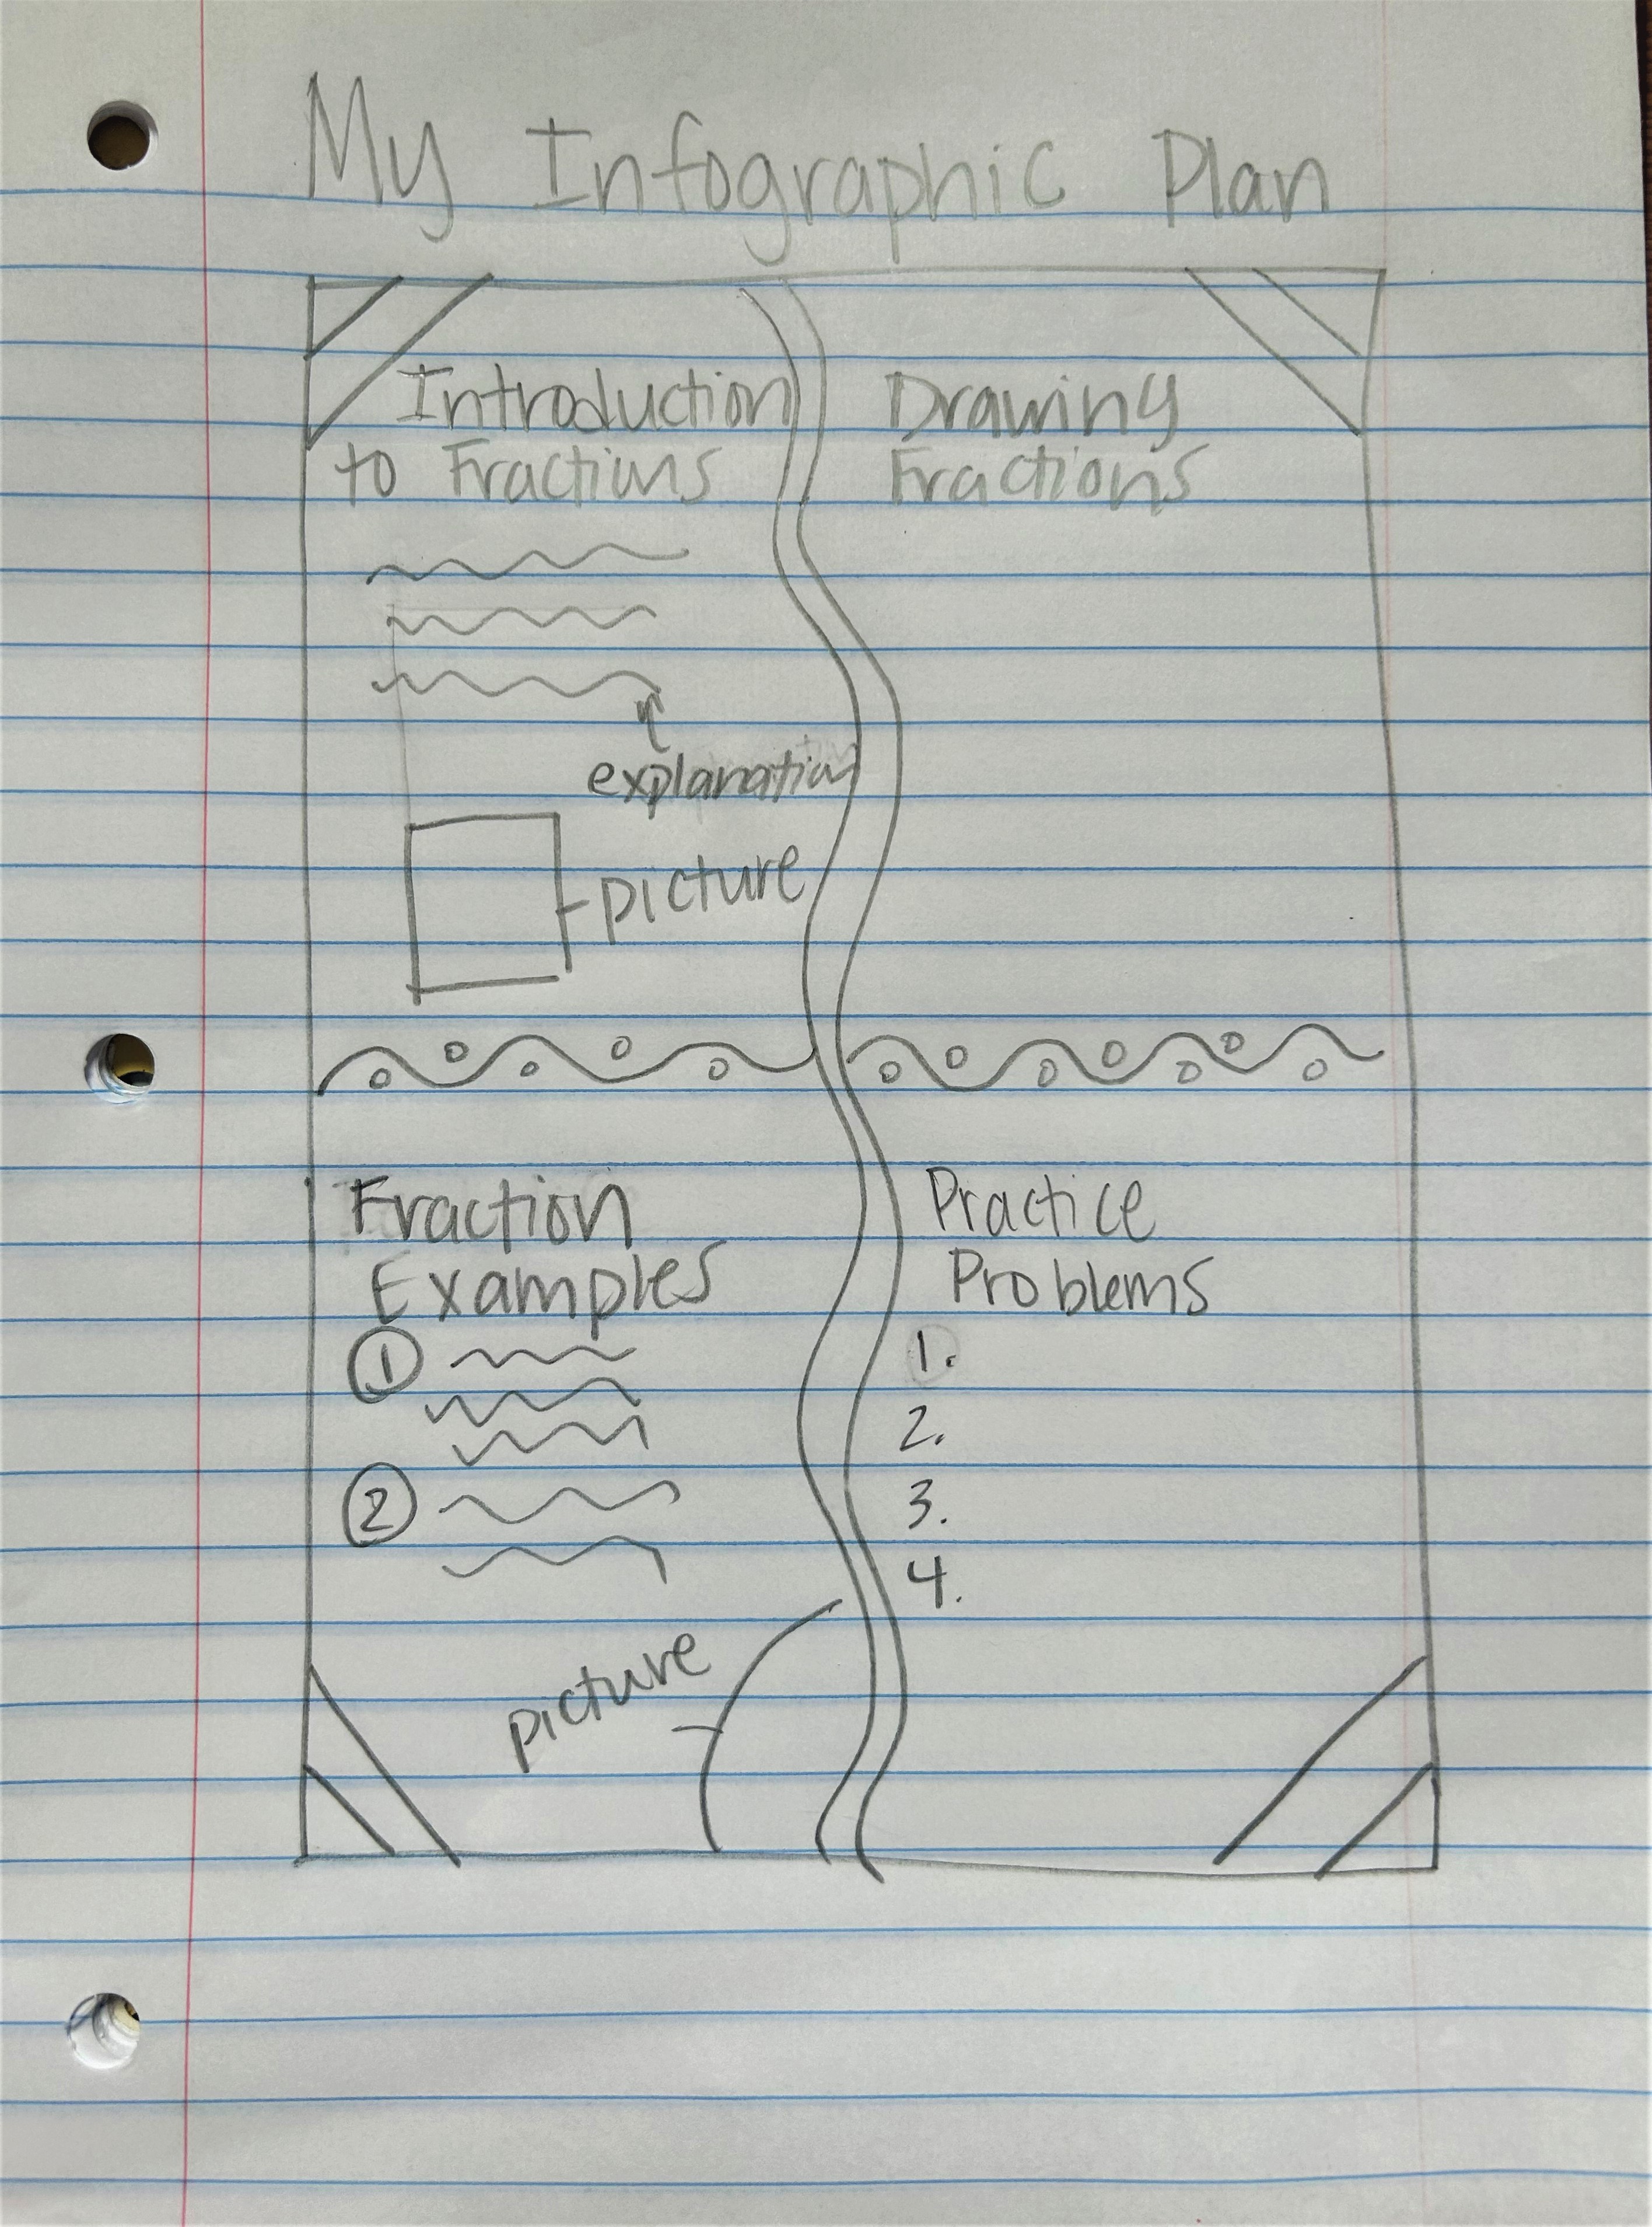 My Infographic Plan
Introduction
to Fractions
explanation
picture
Drawing
Fractions
Fraction
Examples
1
2
picture
Practice
Problems
1.
2.
3.
4.